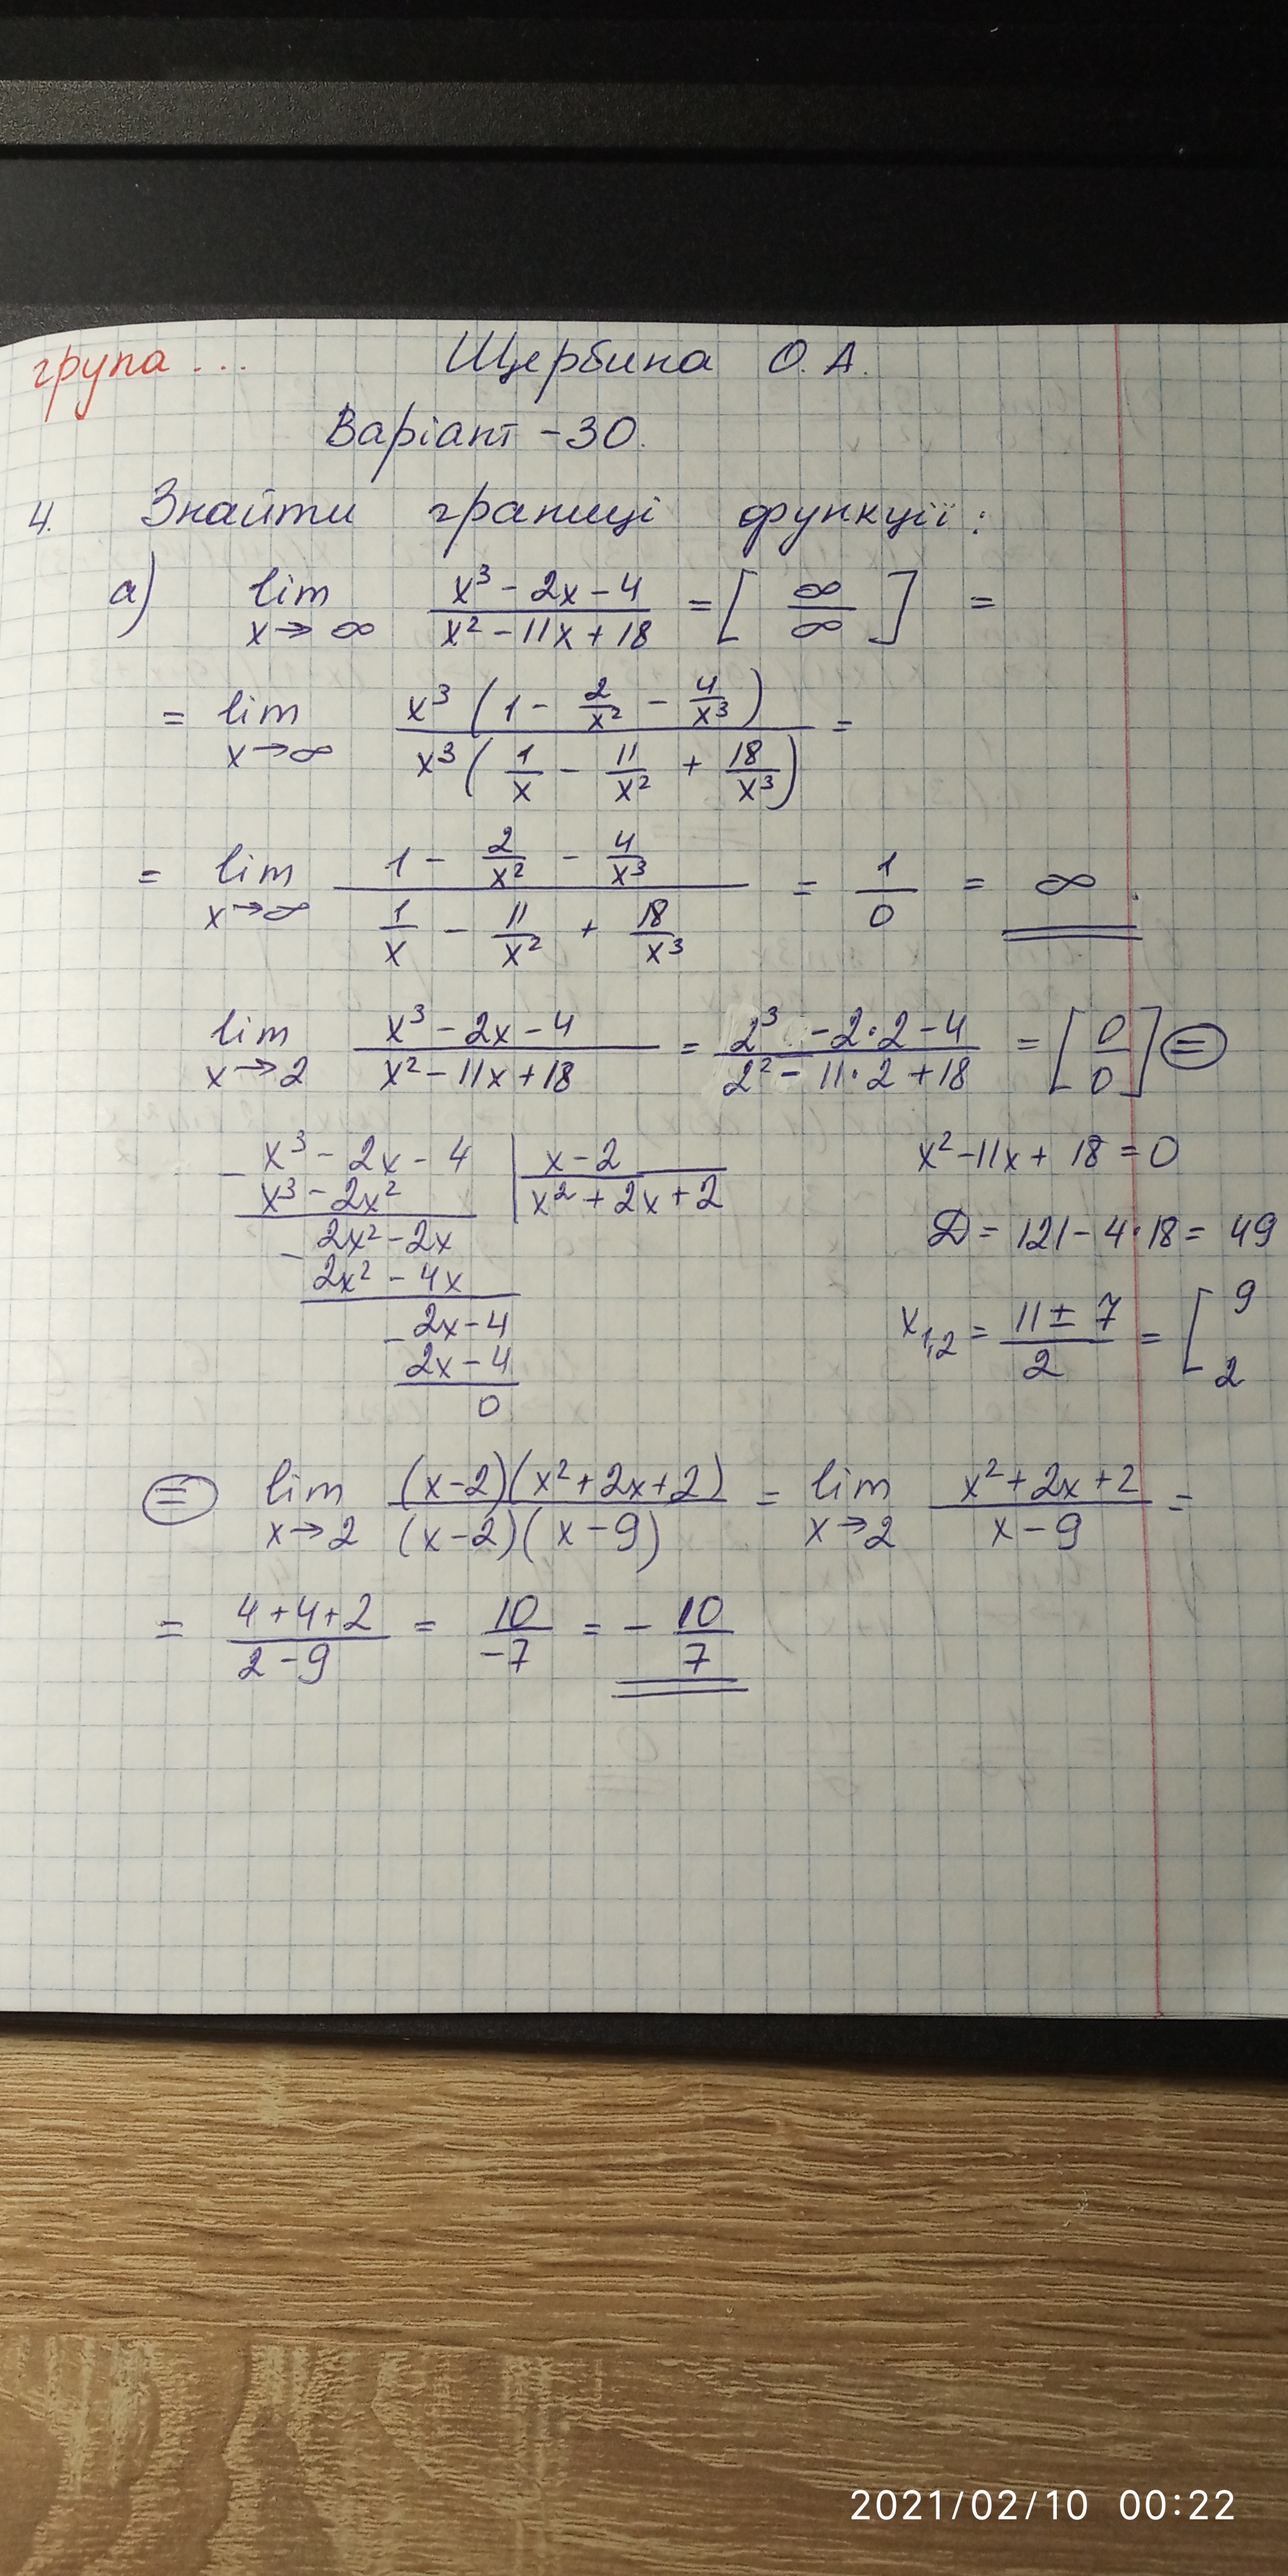 група ... Щербина О. А.
Варіант - 30.
4. Знайти границі функції:
а) lim x→∞ (x³ - 2x - 4)/(x² - 11x + 18) = [∞/∞] =
= lim x→∞ x³(1 - 2/x² - 4/x³)/x³(1/x - 11/x² + 18/x³) =
= lim x→∞ (1 - 2/x² - 4/x³)/(1/x - 11/x² + 18/x³) = 1/0 = ∞.
lim x→2 (x³ - 2x - 4)/(x² - 11x + 18) = (2³ - 2·2 - 4)/(2² - 11·2 + 18) = [0/0] =
- x³ - 2x - 4 | x - 2
x³ - 2x² | x² + 2x + 2
- 2x² - 2x
2x² - 4x
- 2x - 4
2x - 4
0
x² - 11x + 18 = 0
D = 121 - 4·18 = 49
x1,2 = (11 ± 7)/2 = [ 9 2
= lim x→2 (x - 2)(x² + 2x + 2)/(x - 2)(x - 9) = lim x→2 (x² + 2x + 2)/(x - 9) =
= (4 + 4 + 2)/(2 - 9) = 10/-7 = - 10/7
2021/02/10 00:22